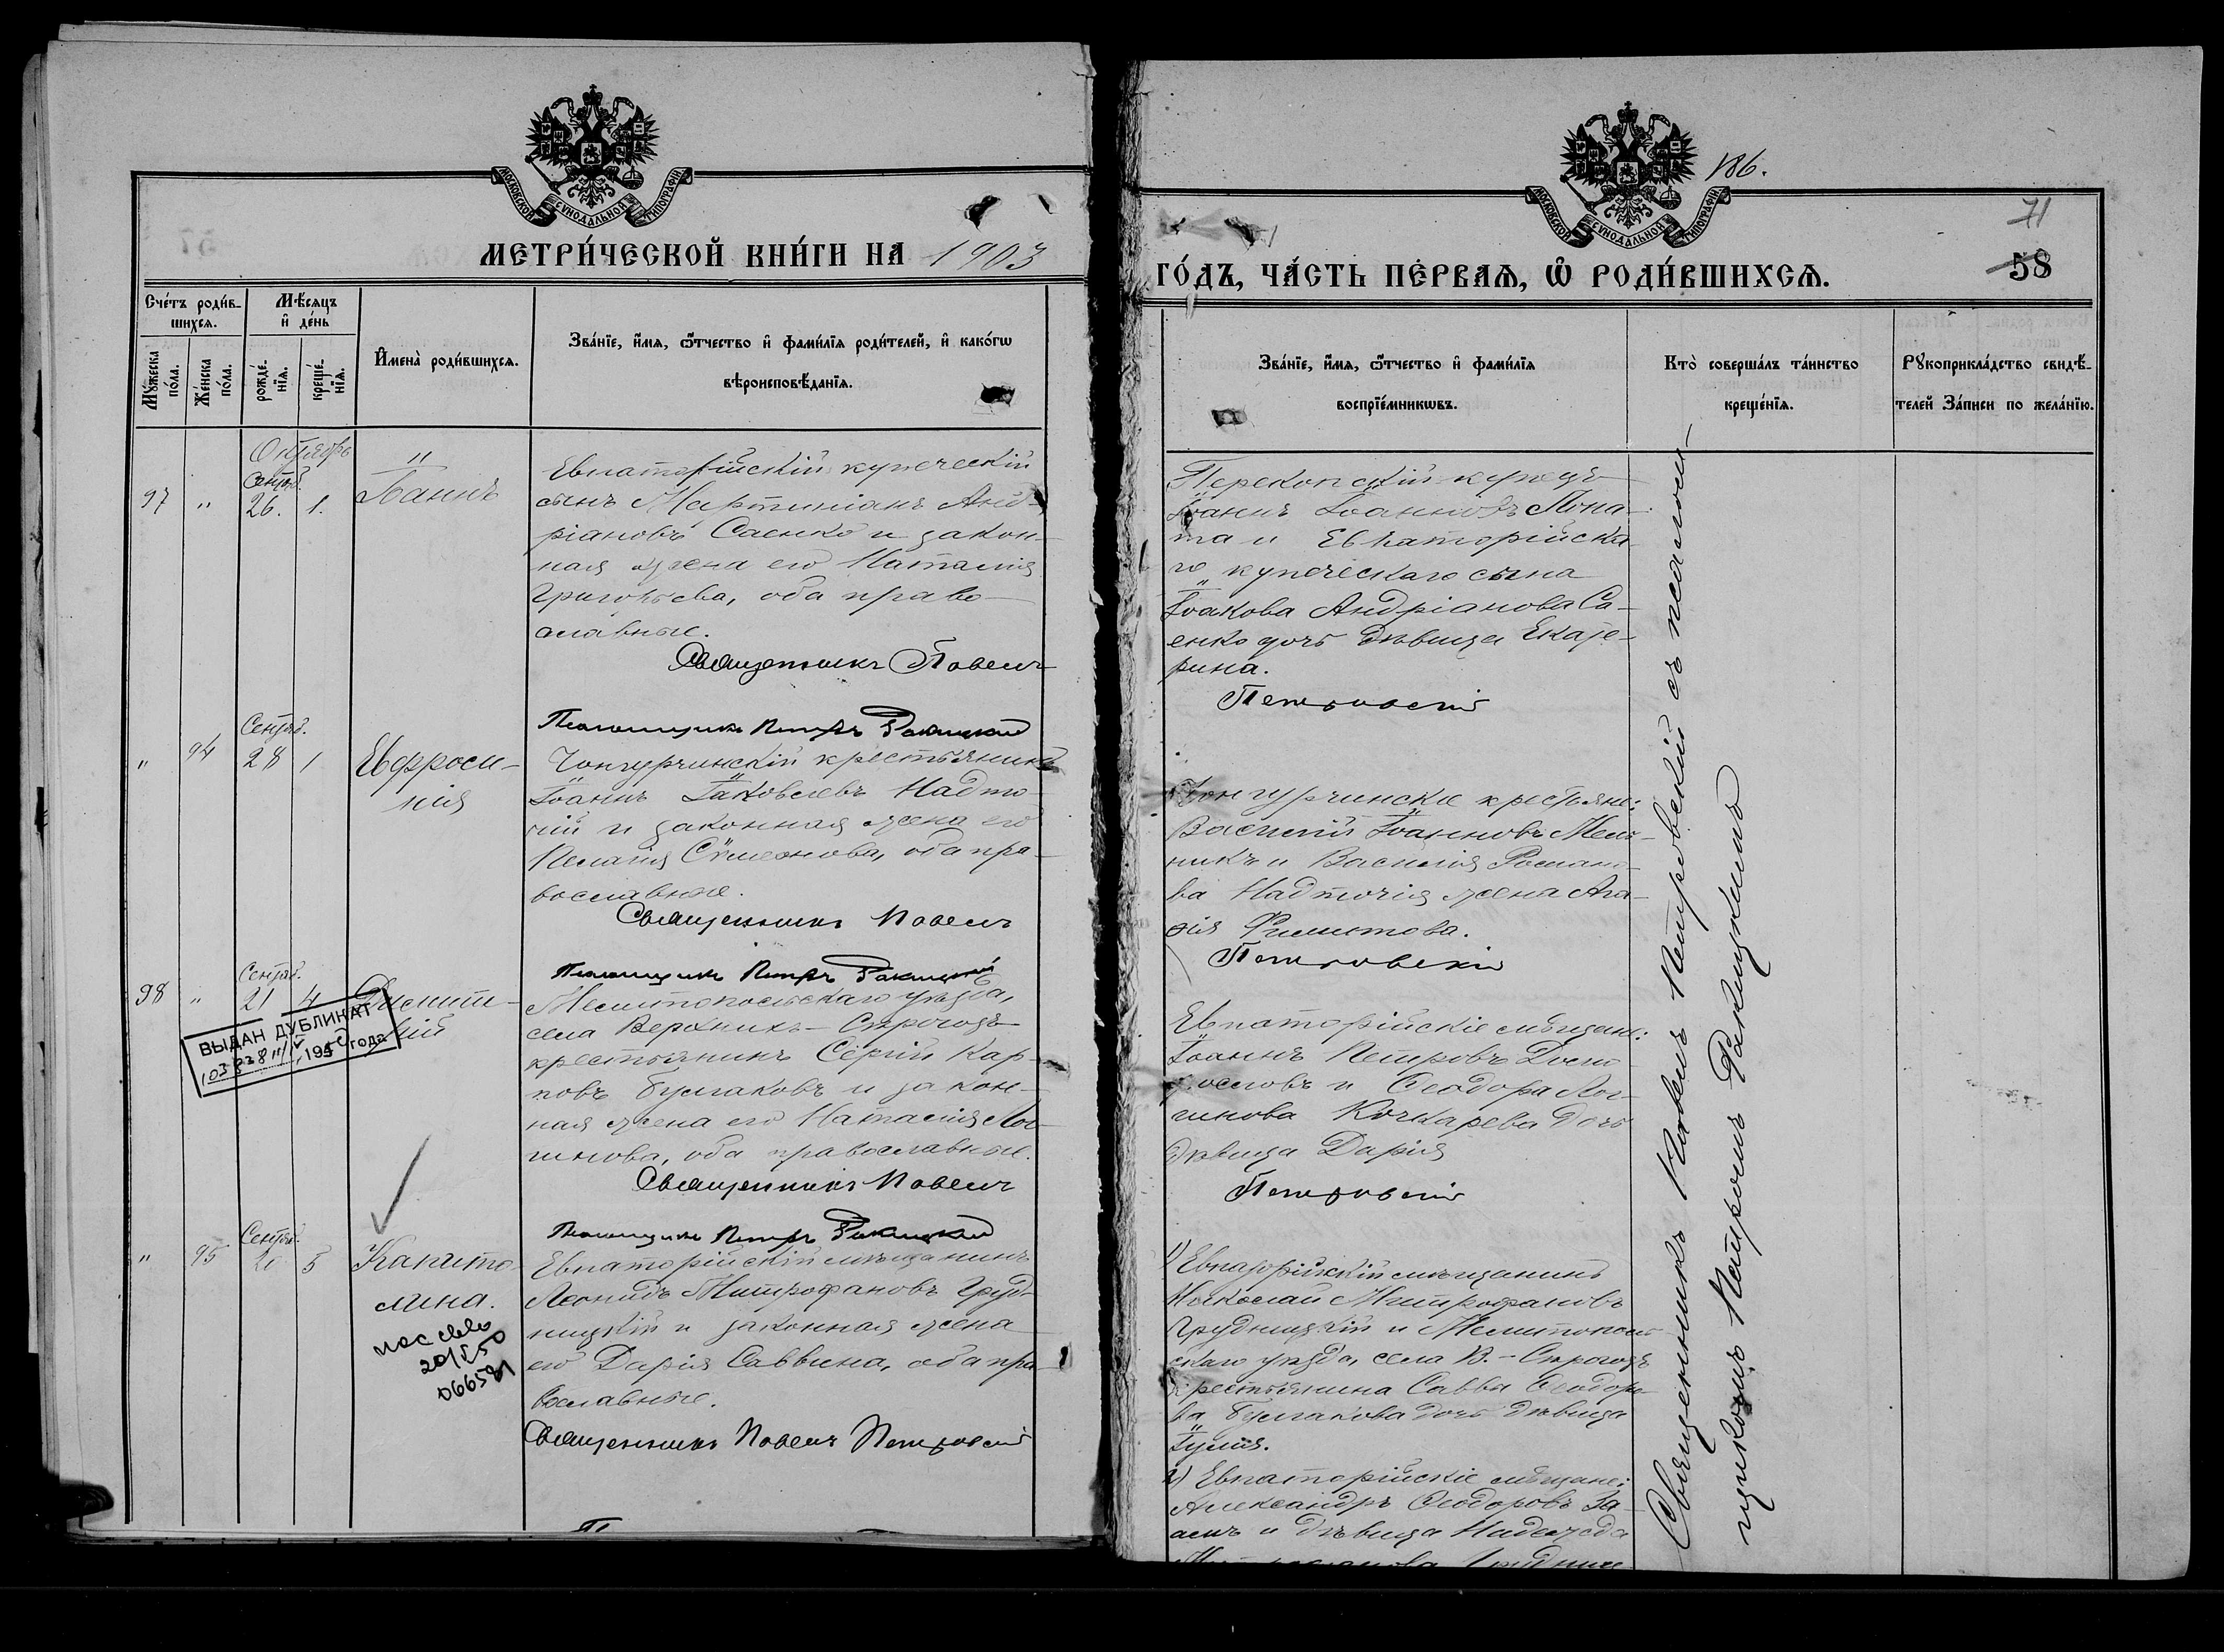 МОСКОВСКОЙ СѴНОДАЛЬНОЙ ТИПОГРАФІИ
МЕТРИ́ЧЕСКОЙ КНИ́ГИ НА 1903
Сче́тъ роди́в-
шихсѧ.
Мѣ́сѧцъ
и҆ де́нь
Мꙋ́жеска
по́ла.
Же́нска
по́ла.
рожде́-
нїѧ.
креще́-
нїѧ.
И҆мена̀ роди́вшихсѧ.
Зва́нїе, и҆́мѧ, ѻ҆́тчество и҆ фами́лїѧ роди́телей, и҆ како́гѡ
вѣроисповѣ́данїѧ.
Октябрь
97 " Сентяб. 26. 1. Іоаннъ
Евпаторійскій купеческій
сынъ Мартиніанъ Анд-
ріановъ Саенко и закон-
ная жена его Наталія
Григорьева, оба право-
славные.
Священникъ Павелъ
Псаломщикъ Петръ Ракицкій
" 94 Сентяб. 28 1 Евфроси-
нія
Чонгурчинскій крестьянинъ
Іоаннъ Іаковлевъ Надто-
чій и законная жена его
Пелагія Сѵмеонова, оба пра-
вославные.
Священникъ Павелъ
Псаломщикъ Петръ Ракицкій
98 " Сентяб. 21 4 Димит-
рій
ВЫДАН ДУБЛИКАТ
195 года
Мелитопольскаго уѣзда,
села Верхнихъ-Сѣрогозъ
крестьянинъ Сергій Кар-
повъ Булгаковъ и закон-
ная жена его Наталія Лог-
гинова, оба православные.
Священникъ Павелъ
Псаломщикъ Петръ Ракицкій
" 95 Сентяб. 21 5 Капито-
лина.
Евпаторійскій мѣщанинъ
Леонидъ Митрофановъ Груд-
ницкій и законная жена
его Дарія Саввина, оба пра-
вославные.
Священникъ Павелъ Петровскій
МОСКОВСКОЙ СѴНОДАЛЬНОЙ ТИПОГРАФІИ
186.
71
58
ГО́ДЪ, ЧА́СТЬ ПЕ́РВАѦ, Ѡ҆ РОДИ́ВШИХСѦ.
Зва́нїе, и҆́мѧ, ѻ҆́тчество и҆ фами́лїѧ
воспрїе́мникѡвъ.
Кто̀ соверша́лъ та́инство
креще́нїѧ.
Рꙋкоприкла́дство свидѣ́-
телей За́писи по жела́нїю.
Перекопскій купецъ
Іоаннъ Іоанновъ Лопа-
та и Евпаторійска-
го купеческаго сына
Іоакова Андріанова Са-
енко дочь дѣвица Екате-
рина.
Петровскій
Чонгурчинскіе крестьяне:
Василій Іоанновъ Мель-
никъ и Василія Романо-
ва Надточія жена Ага-
ѳія Филиппова.
Петровскій
Евпаторійскіе мѣщане:
Іоаннъ Петровъ
и Ѳеодора Лог-
гинова Кочкарева дочь
дѣвица Дарія
Петровскій
1) Евпаторійскій мѣщанинъ
Николай Митрофановъ
Грудницкій и Мелитополь-
скаго уѣзда, села В.-Сѣрогозъ
крестьянина Саввы Ѳеодоро-
ва Булгакова дочь дѣвица
Іулія.
2) Евпаторійскіе мѣщане:
Александръ Ѳеодоровъ За-
и дѣвица Надежда
Священникъ Павелъ Петровскій съ псалом-
щикомъ Петромъ Ракицкимъ